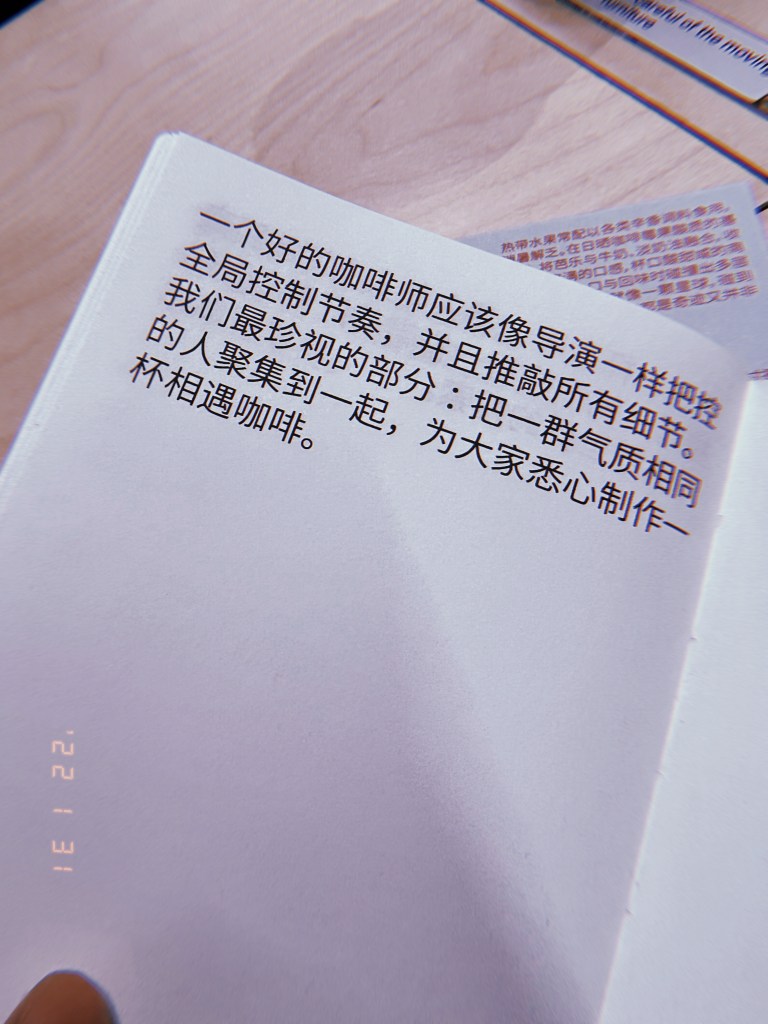 careful of the moving
furniture
热带水果常配以各类辛香调料食用,
一个好的咖啡师应该像导演一样把控
全局控制节奏，并且推敲所有细节。
我们最珍视的部分：把一群气质相同
的人聚集到一起，为大家悉心制作一
杯相遇咖啡。
'22 1 31